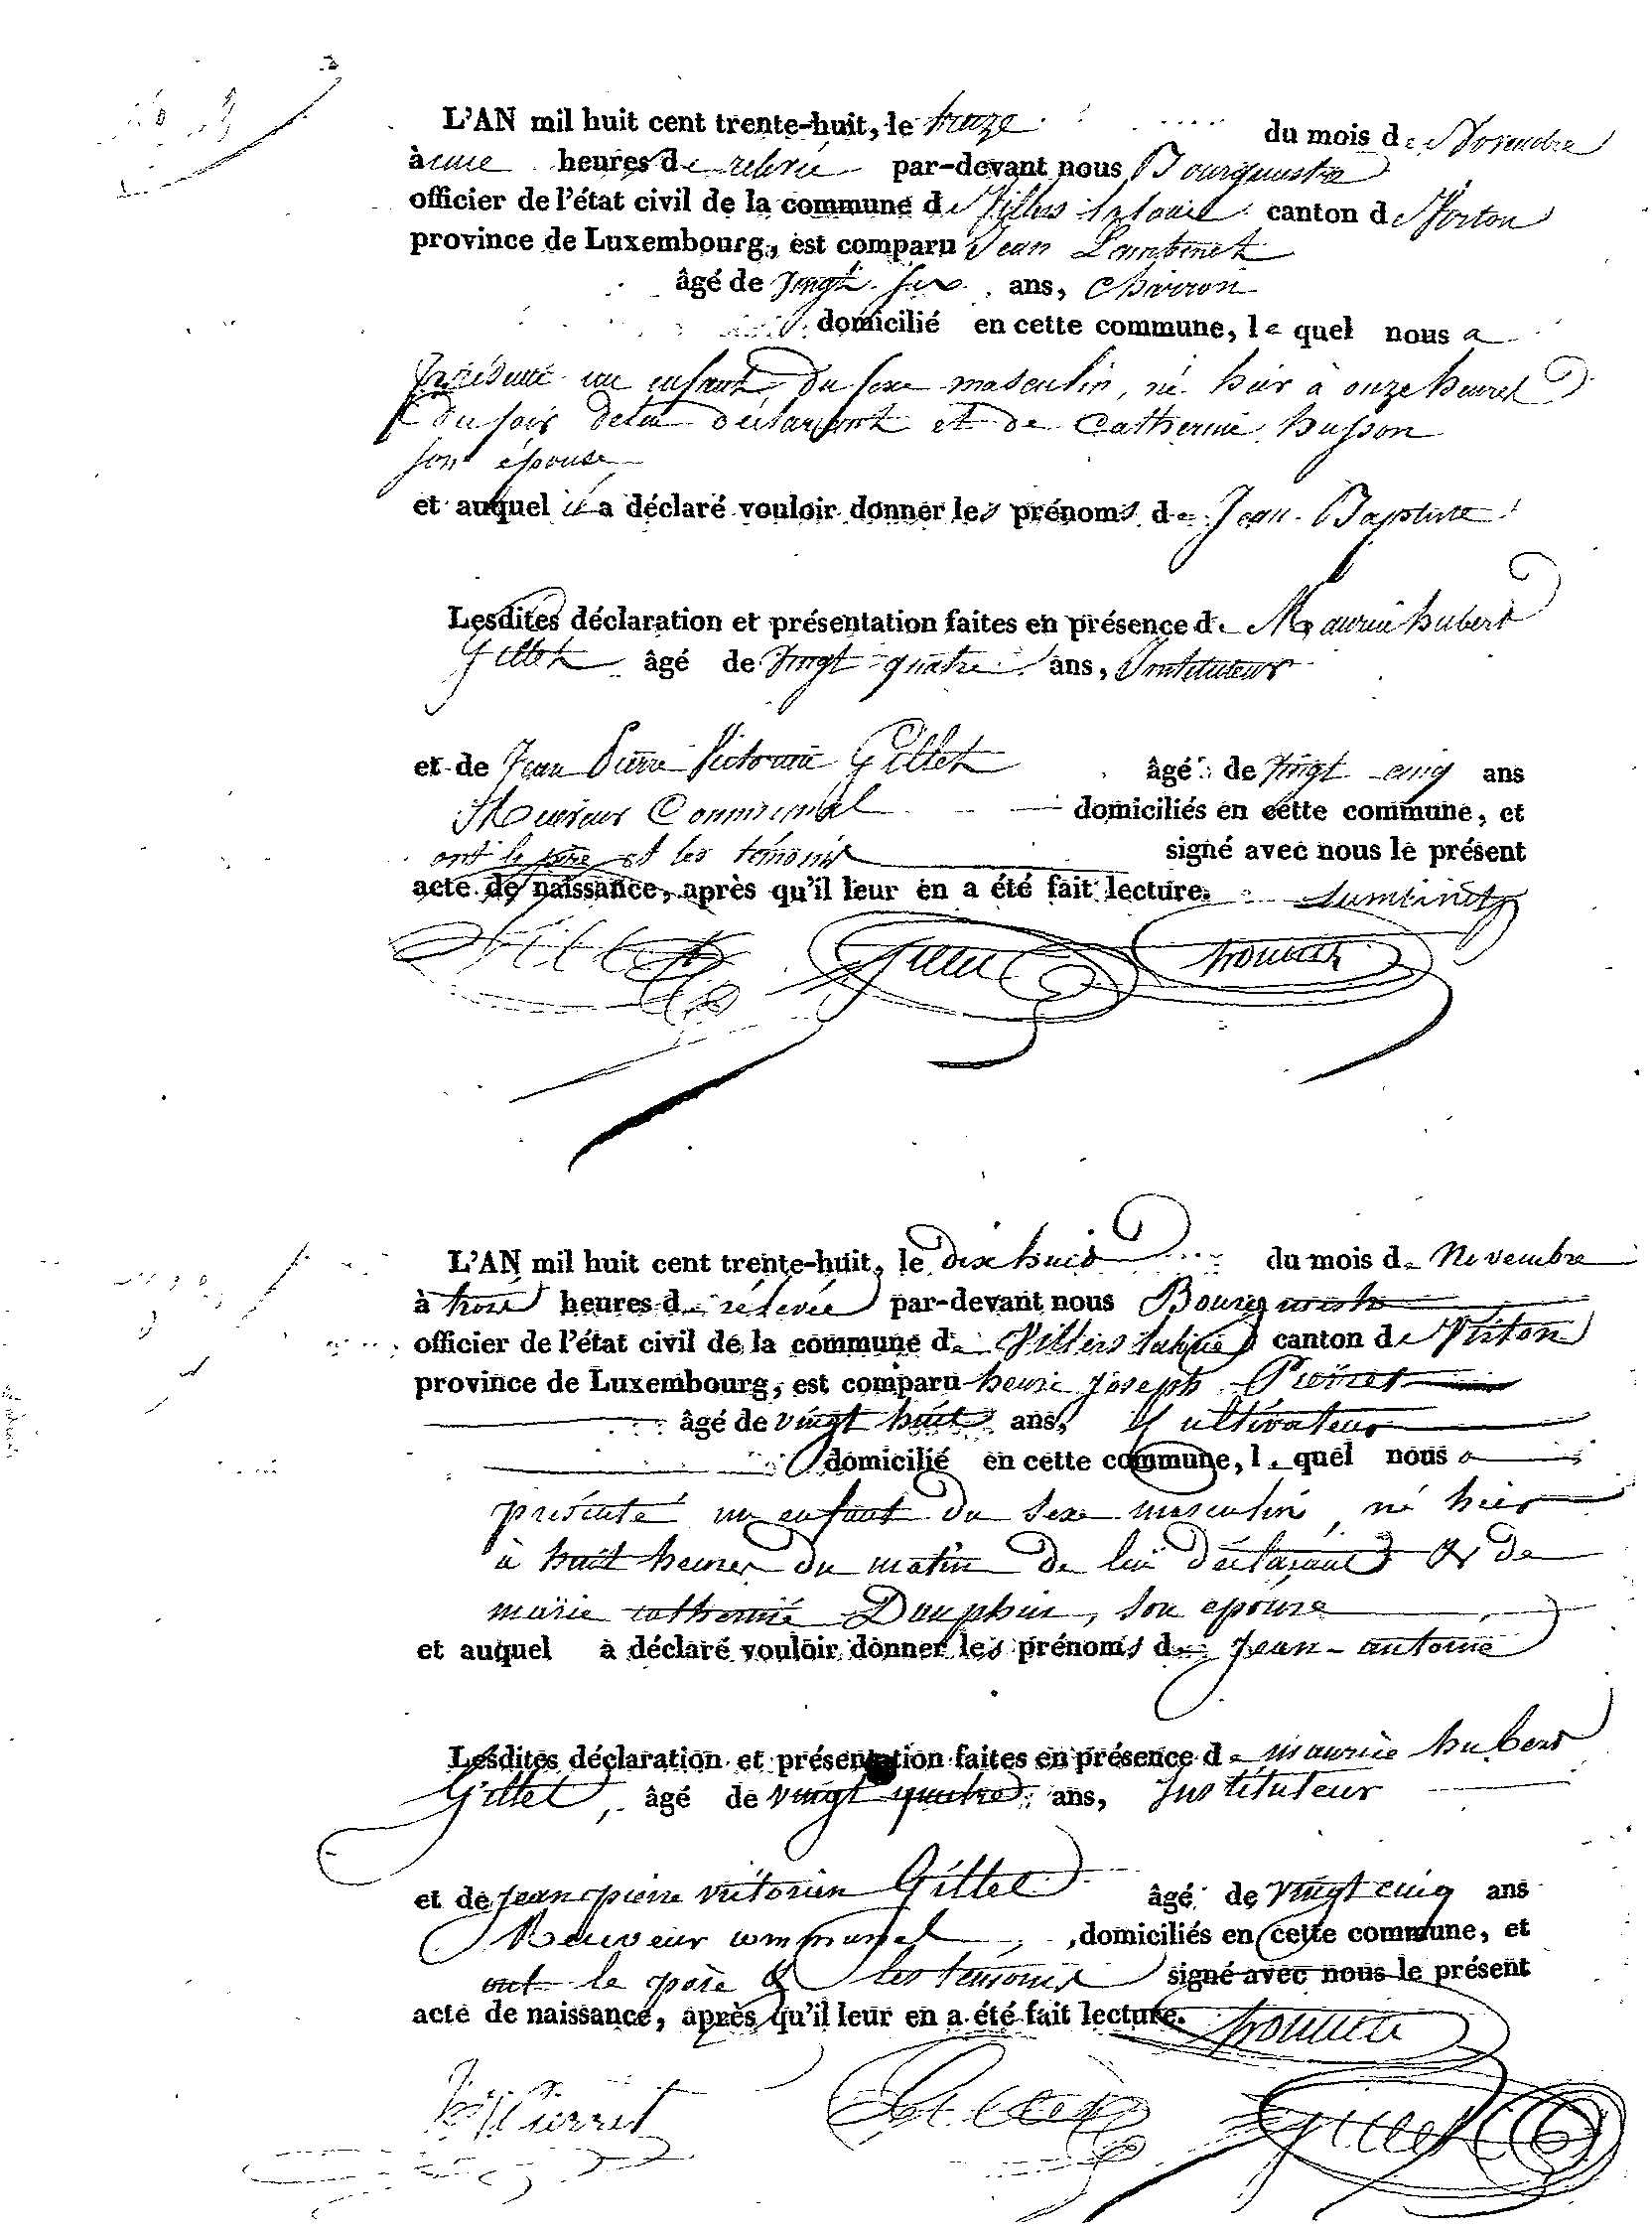 L'AN mil huit cent trente-huit, le treize du mois de Novembre
à une heures de relevée par-devant nous Bourgmestre
officier de l'état civil de la commune de Villers la loue canton de Virton
province de Luxembourg, est comparu Jean Lambinet
âgé de vingt six ans, charron
domicilié en cette commune, le quel nous a
présenté un enfant du sexe masculin, né hier à onze heures
du soir de lui déclarant et de Catherine husson
son épouse
et auquel il a déclaré vouloir donner les prénoms de Jean Baptiste
Lesdites déclaration et présentation faites en présence de Maurice hubert
Gillet âgé de vingt quatre ans, Instituteur
et de Jean Pierre Victorin Gillet âgé de vingt cinq ans
Receveur Communal domiciliés en cette commune, et
ont le père et les témoins signé avec nous le présent
acte de naissance, après qu'il leur en a été fait lecture. Lambinet
Gillet Gillet
L'AN mil huit cent trente-huit, le dix huit du mois de Novembre
à trois heures de relevée par-devant nous Bourgmestre
officier de l'état civil de la commune de Villers laloue canton de Virton
province de Luxembourg, est comparu henri joseph Pierret
âgé de vingt huit ans, Cultivateur
domicilié en cette commune, le quel nous a
présenté un enfant du sexe masculin, né hier
à huit heures du matin de lui déclarant & de
marie catherine Dauphin, son épouse
et auquel a déclaré vouloir donner les prénoms de Jean-antoine
Lesdites déclaration et présentation faites en présence de maurice hubert
Gillet, âgé de vingt quatre ans, Instituteur
et de jean pierre victorien Gillet âgé de vingt cinq ans
Receveur communal, domiciliés en cette commune, et
ont le père & les temoins signé avec nous le présent
acte de naissance, après qu'il leur en a été fait lecture.
Pierret Gillet Gillet